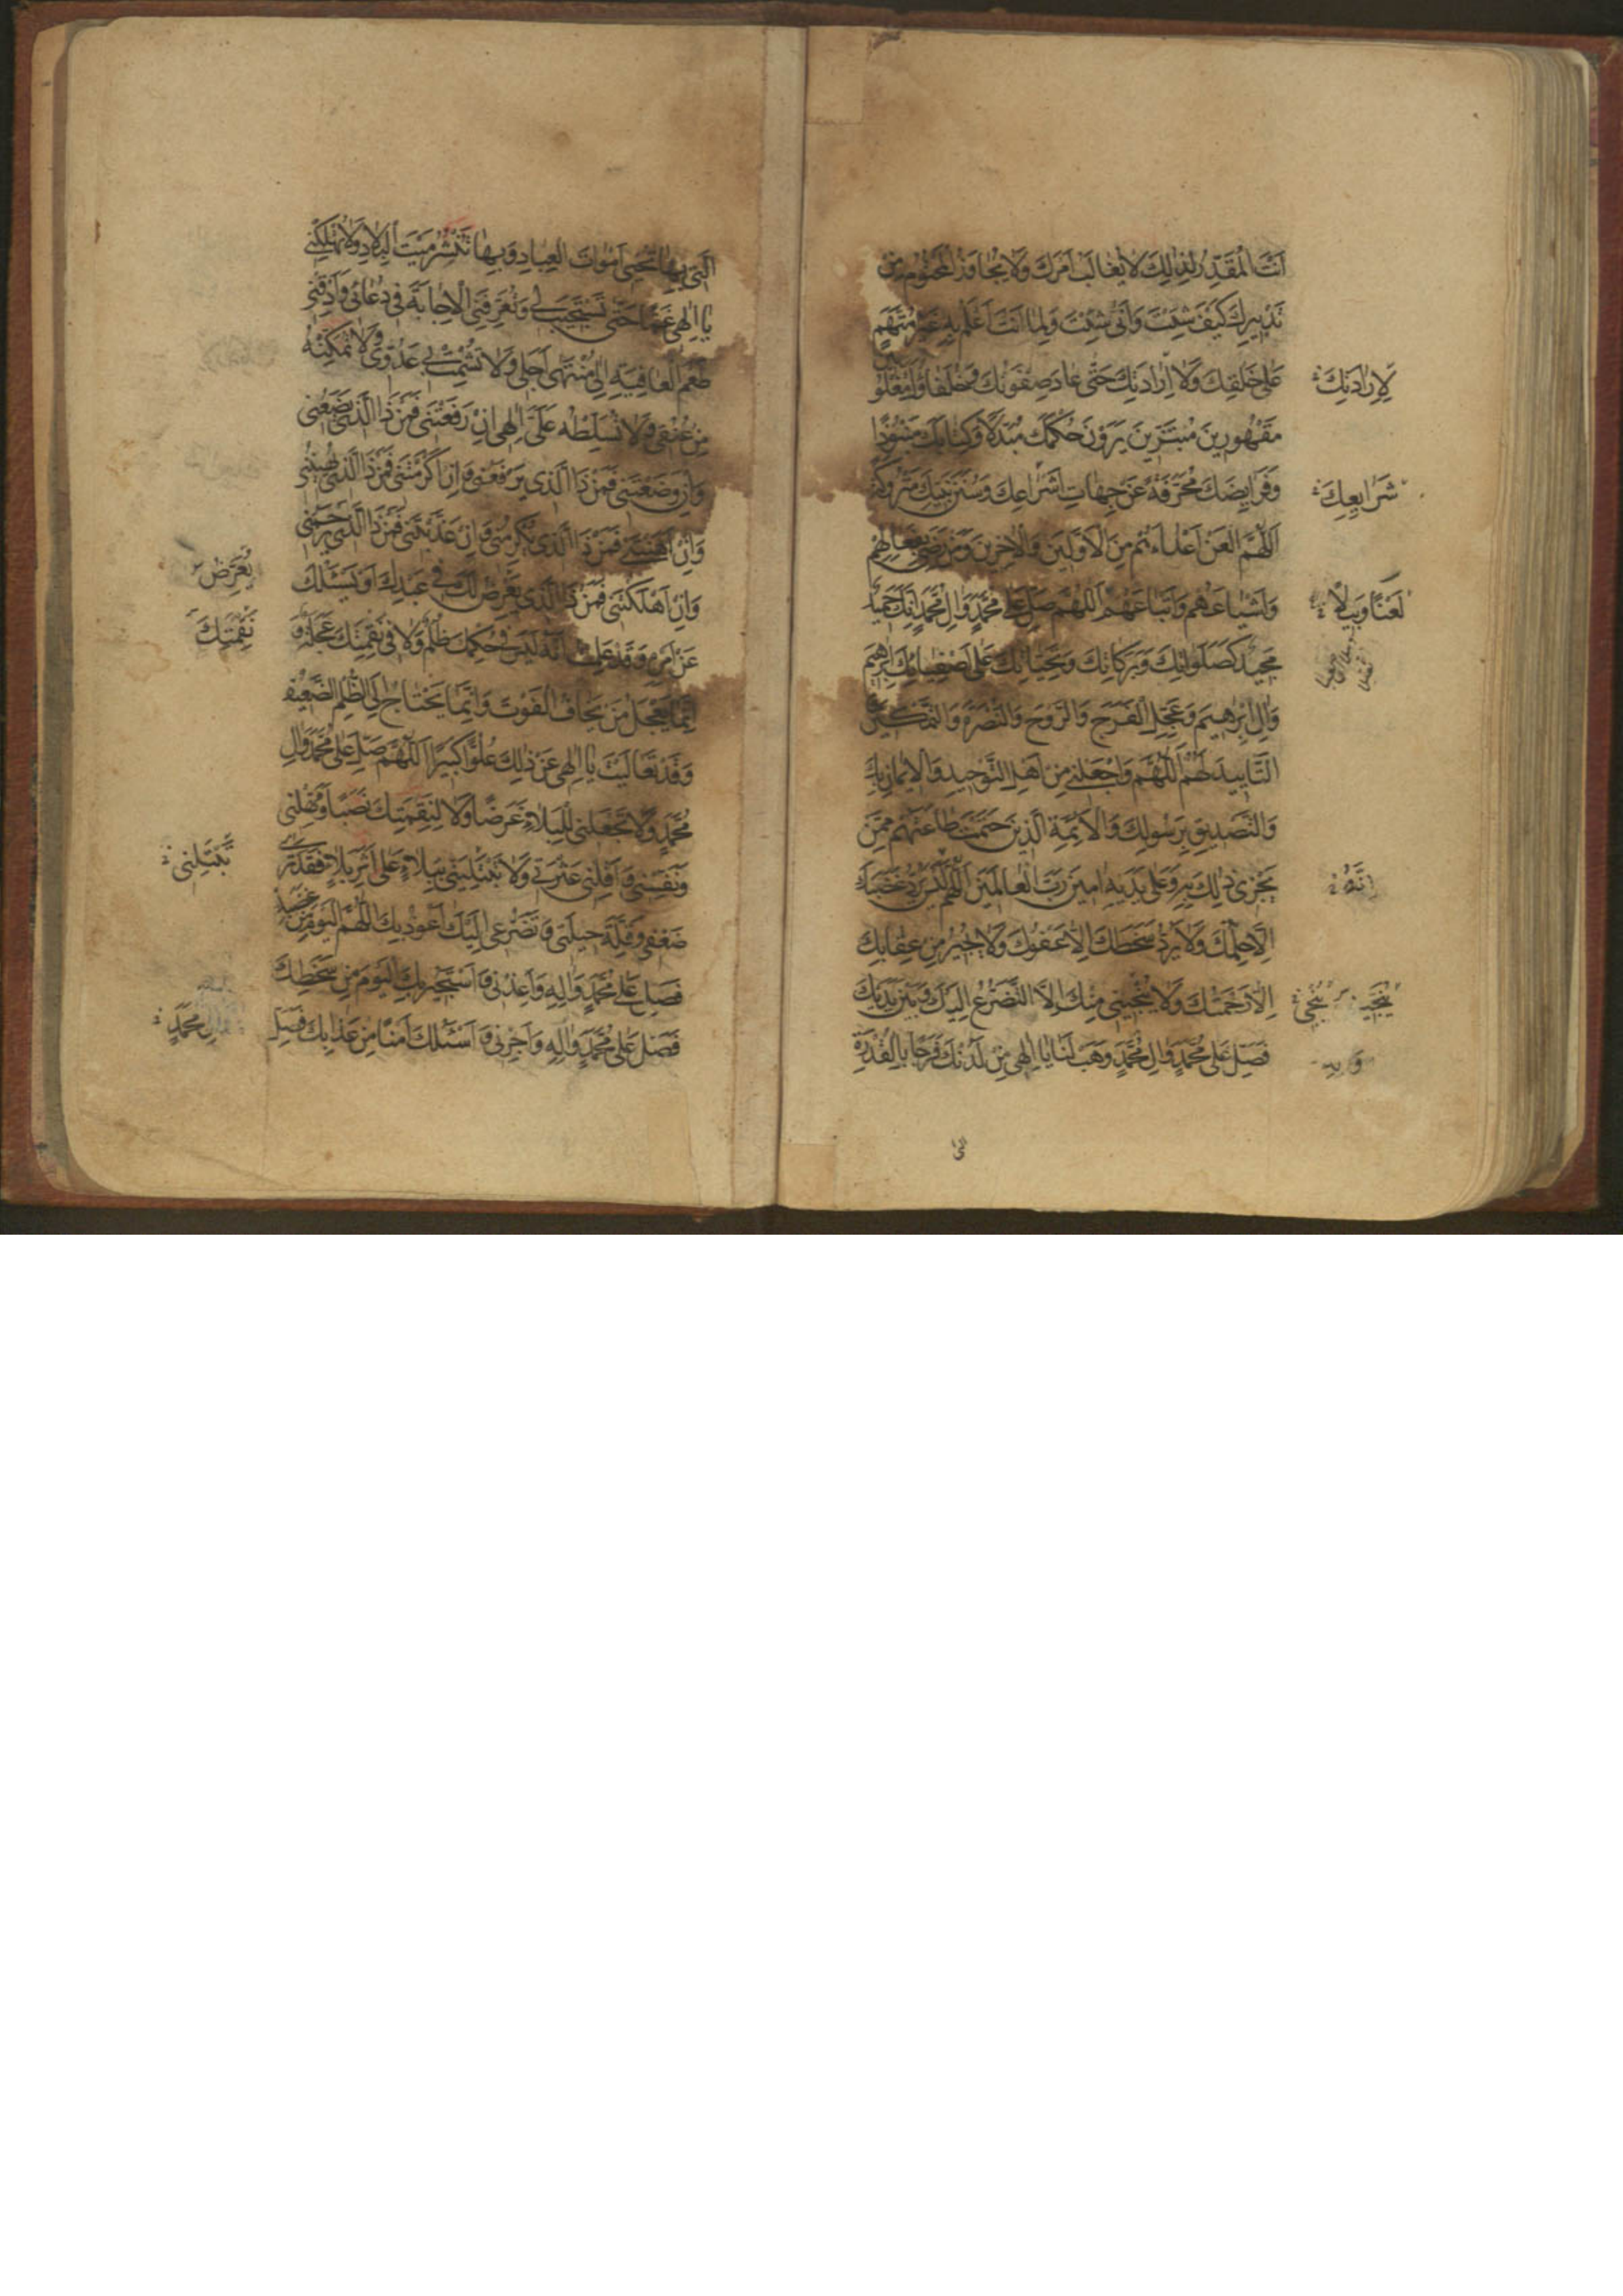 اَنْتَ الْمُقَدِّرُ لِذٰلِكَ لَا يُغَالَبُ اَمْرُكَ وَلَا يُجَاوَزُ الْمَحْتُومُ مِنْ
تَدْبِيرِكَ كَيْفَ شِئْتَ وَاَنّٰى شِئْتَ وَلِمَا اَنْتَ اَعْلَمُ بِهِ غَيْرُ مُتَّهَمٍ
عَلٰى خَلْقِكَ وَلَا اِرَادَتِكَ حَتّٰى عَادَ صِفْوَتُكَ وَخُلَفَاؤُكَ مَغْلُوبِينَ
لِاِرَادَتِكَ
مَقْهُورِينَ مُبْتَزِّينَ يَرَوْنَ حُكْمَكَ مُبَدَّلًا وَكِتَابَكَ مَنْبُوذًا
وَفَرَايِضَكَ مُحَرَّفَةً عَنْ جِهَاتِ اَشْرَاعِكَ وَسُنَنَ نَبِيِّكَ مَتْرُوكَةً
شَرَايِعِكَ
اَللّٰهُمَّ الْعَنْ اَعْدَاءَهُمْ مِنَ الْاَوَّلِينَ وَالْاٰخِرِينَ وَمَنْ رَضِيَ بِفِعَالِهِمْ
وَاَشْيَاعَهُمْ وَاَتْبَاعَهُمْ اَللّٰهُمَّ صَلِّ عَلٰى مُحَمَّدٍ وَاٰلِ مُحَمَّدٍ اِنَّكَ حَمِيدٌ
لَعْنًا وَبِيلًا
مَجِيدٌ كَصَلَوَاتِكَ وَبَرَكَاتِكَ وَتَحِيَّاتِكَ عَلٰى اَصْفِيَائِكَ اِبْرٰهِيمَ
وَاٰلِ اِبْرٰهِيمَ وَعَجِّلِ الْفَرَجَ وَالرَّوْحَ وَالنُّصْرَةَ وَالتَّمْكِينَ وَ
التَّايِيدَ لَهُمْ اَللّٰهُمَّ وَاجْعَلْنِي مِنْ اَهْلِ التَّوْحِيدِ وَالْاِيمَانِ بِكَ
وَالتَّصْدِيقِ بِرَسُولِكَ وَالْاَئِمَّةِ الَّذِينَ حَتَمْتَ طَاعَتَهُمْ مِمَّنْ
يَجْرِي ذٰلِكَ بِهِ وَعَلٰى يَدَيْهِ اٰمِينَ رَبَّ الْعَالَمِينَ اَللّٰهُمَّ لَيْسَ يَرُدُّ غَضَبَكَ
اِنَّهُ
اِلَّا حِلْمُكَ وَلَا يَرُدُّ سَخَطَكَ اِلَّا عَفْوُكَ وَلَا يُجِيرُ مِنْ عِقَابِكَ
اِلَّا رَحْمَتُكَ وَلَا يُنْجِينِي مِنْكَ اِلَّا التَّضَرُّعُ اِلَيْكَ وَبَيْنَ يَدَيْكَ
فَصَلِّ عَلٰى مُحَمَّدٍ وَاٰلِ مُحَمَّدٍ وَهَبْ لَنَا يَا اِلٰهِي مِنْ لَدُنْكَ فَرَجًا بِالْقُدْرَةِ
الَّتِي بِهَا تُحْيِي اَمْوَاتَ الْعِبَادِ وَبِهَا تَنْشُرُ مَيْتَ الْبِلَادِ وَلَا تُهْلِكْنِي
يَا اِلٰهِي غَمًّا حَتّٰى تَسْتَجِيبَ لِي وَتُعَرِّفَنِي الْاِجَابَةَ فِي دُعَائِي وَاَذِقْنِي
طَعْمَ الْعَافِيَةِ اِلٰى مُنْتَهٰى اَجَلِي وَلَا تُشْمِتْ بِي عَدُوِّي وَلَا تُمَكِّنْهُ
مِنْ عُنُقِي وَلَا تُسَلِّطْهُ عَلَيَّ اِلٰهِي اِنْ رَفَعْتَنِي فَمَنْ ذَا الَّذِي يَضَعُنِي
وَاِنْ وَضَعْتَنِي فَمَنْ ذَا الَّذِي يَرْفَعُنِي وَاِنْ اَكْرَمْتَنِي فَمَنْ ذَا الَّذِي يُهِينُنِي
وَاِنْ اَهَنْتَنِي فَمَنْ ذَا الَّذِي يُكْرِمُنِي وَاِنْ عَذَّبْتَنِي فَمَنْ ذَا الَّذِي يَرْحَمُنِي
وَاِنْ اَهْلَكْتَنِي فَمَنْ ذَا الَّذِي يَعْرِضُ لَكَ فِي عَبْدِكَ اَوْ يَسْئَلُكَ
يُعَرِّضُ
عَنْ اَمْرِهِ وَقَدْ عَلِمْتُ اَنَّهُ لَيْسَ فِي حُكْمِكَ ظُلْمٌ وَلَا فِي نَقِمَتِكَ عَجَلَةٌ وَ
نِقْمَتِكَ
اِنَّمَا يَعْجَلُ مَنْ يَخَافُ الْفَوْتَ وَاِنَّمَا يَحْتَاجُ اِلَى الظُّلْمِ الضَّعِيفُ
وَقَدْ تَعَالَيْتَ يَا اِلٰهِي عَنْ ذٰلِكَ عُلُوًّا كَبِيرًا اَللّٰهُمَّ صَلِّ عَلٰى مُحَمَّدٍ وَاٰلِ
مُحَمَّدٍ وَلَا تَجْعَلْنِي لِلْبَلَاءِ غَرَضًا وَلَا لِنِقْمَتِكَ نَصَبًا وَمَهِّلْنِي
وَنَفِّسْنِي وَاَقِلْنِي عَثْرَتِي وَلَا تَبْتَلِيَنِّي بِبَلَاءٍ عَلٰى اَثَرِ بَلَاءٍ فَقَدْ تَرٰى
تَبْتَلِنِي
ضَعْفِي وَقِلَّةَ حِيلَتِي وَتَضَرُّعِي اِلَيْكَ اَعُوذُ بِكَ اللّٰهُمَّ الْيَوْمَ مِنْ غَضَبِكَ
فَصَلِّ عَلٰى مُحَمَّدٍ وَاٰلِهِ وَاَعِذْنِي وَاَسْتَجِيرُ بِكَ الْيَوْمَ مِنْ سَخَطِكَ
فَصَلِّ عَلٰى مُحَمَّدٍ وَاٰلِهِ وَاَجِرْنِي وَاَسْئَلُكَ اَمْنًا مِنْ عَذَابِكَ فَصَلِّ